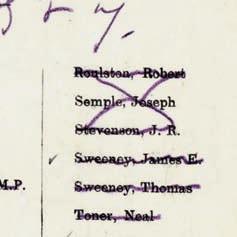 Roulston, Robert
Semple, Joseph
Stevenson, J. R.
Sweeney, James E.
M.P. Sweeney, Thomas
Toner, Neal